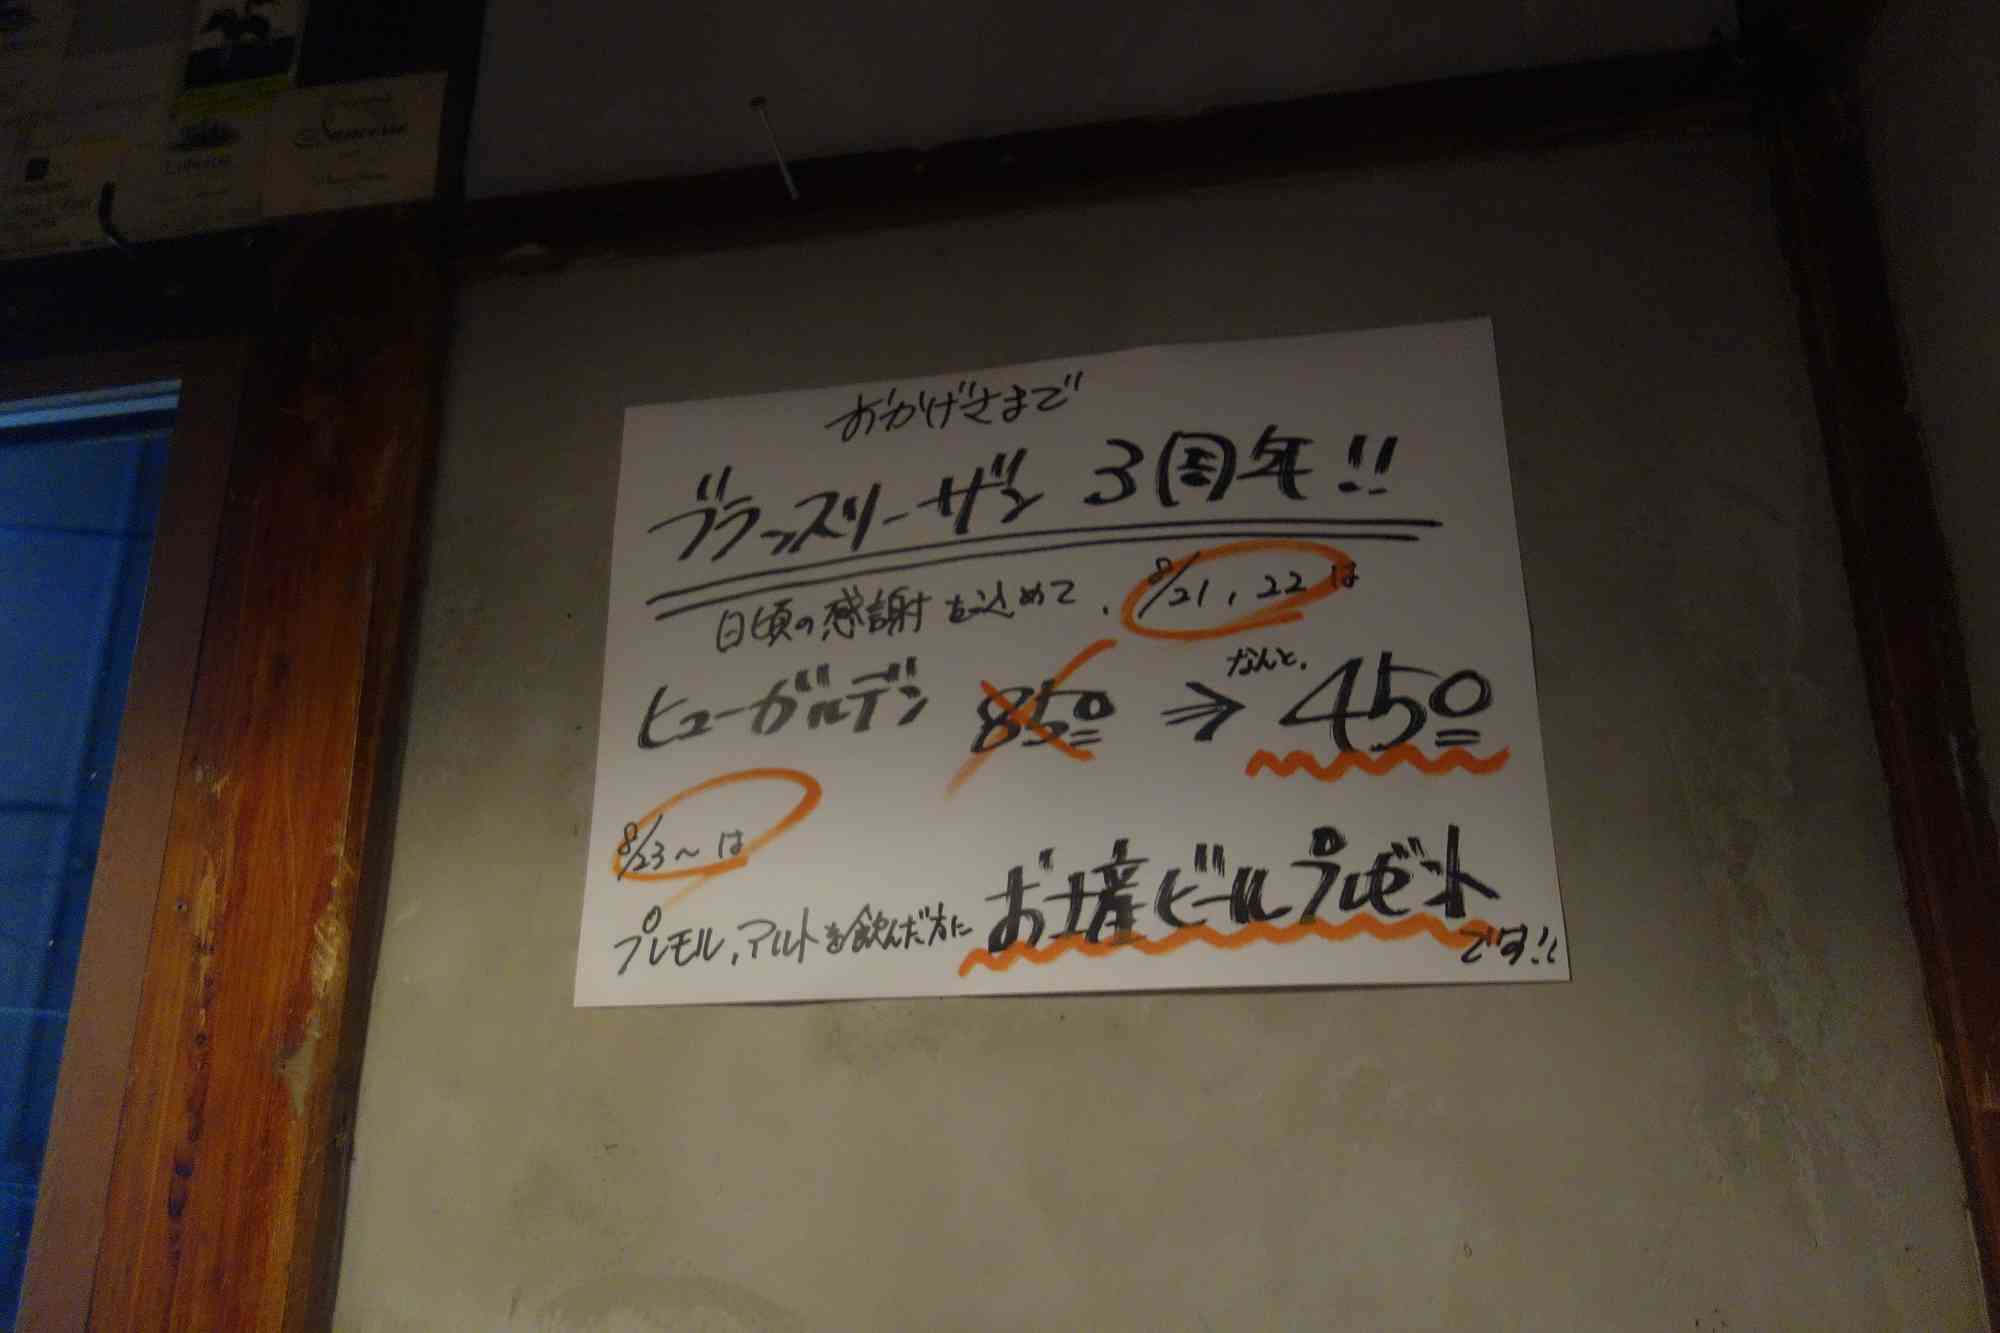 Sancerre
おかげさまで
ブラッスリーザン 3周年!!
日頃の感謝を込めて、8/21,22は
ヒューガルデン 850 ⇒ なんと、450
8/23~は
プレモル,アルトを飲んだ方にお土産ビールプレゼントです!!